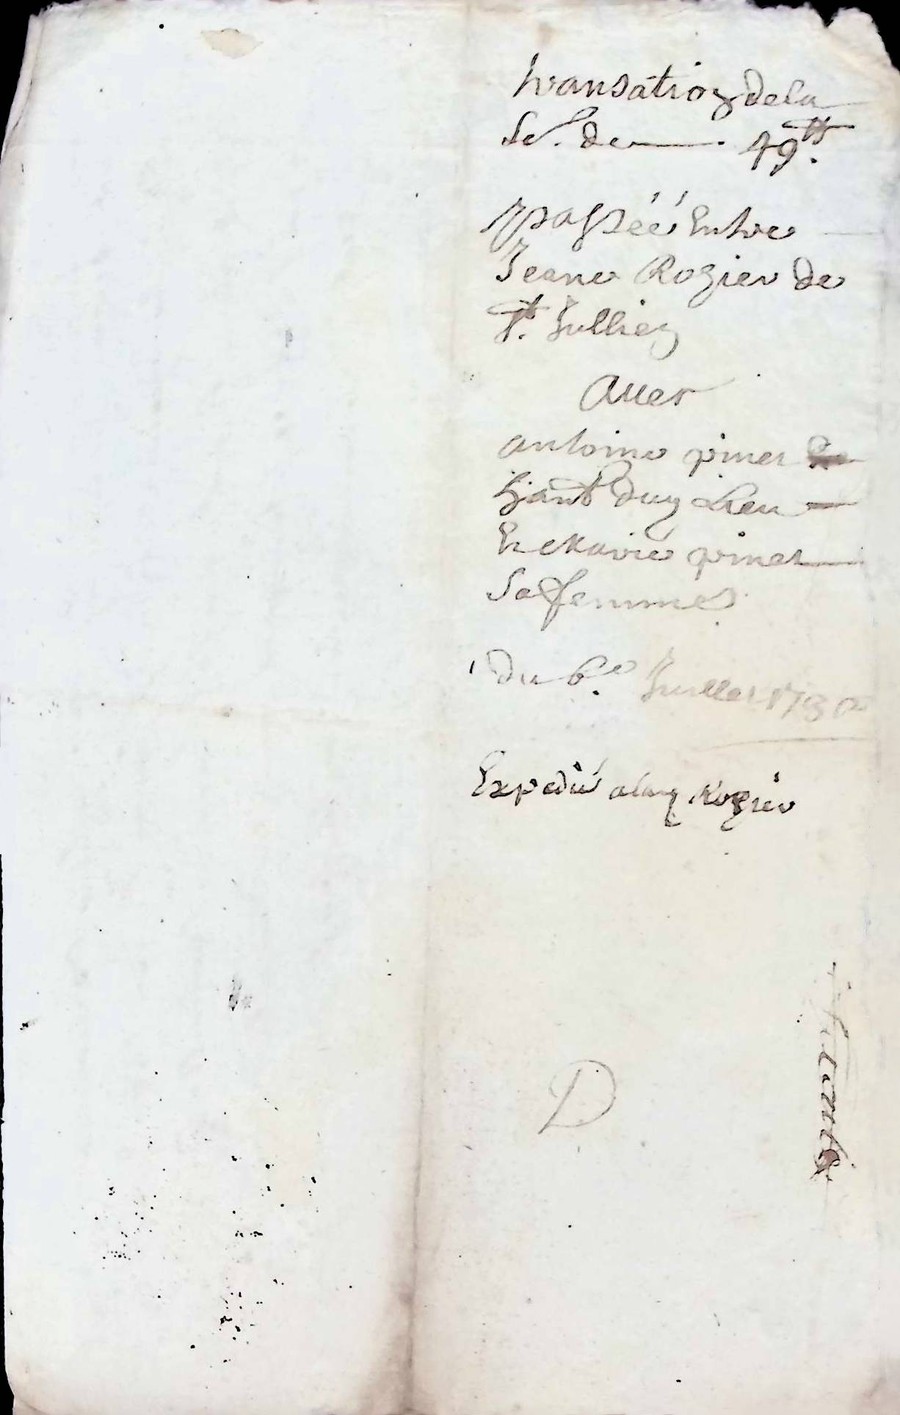 transation de la
Se. de 49 tt.
passéé Entre
Jeane Rozier de
St. Jullien
Avec
antoine pinet
habitant duy Lieu
Et Marie pinet
Sa femme
du 6e. Juillet 1730
Expedié alad Rozier
D